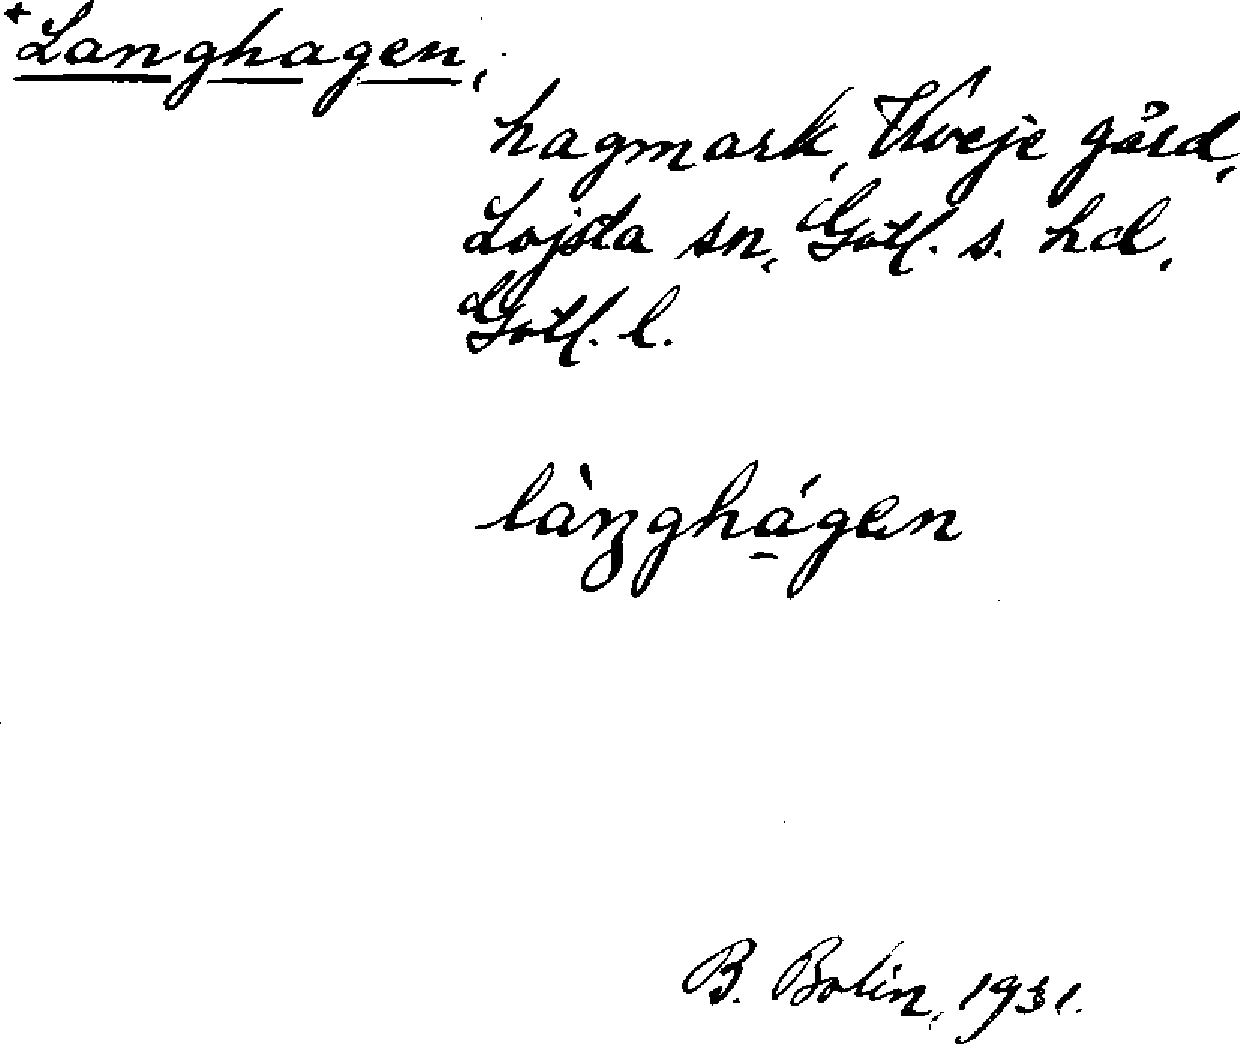 +Langhagen,
hagmark, Kveje gård,
Lojsta sn, Gotl. s. hd,
Gotl. l.
làŋghágen
B. Bolin, 1931.